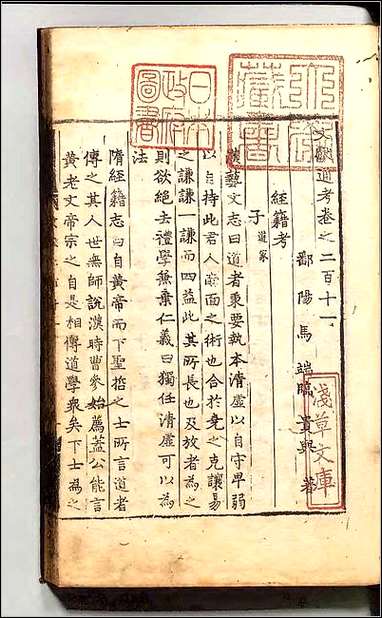 文獻通考卷之二百十一
鄱陽馬端臨貴與著
經籍考
子 道家
漢藝文志曰道者秉要執本清虛以自守卑弱
以自持此君人南面之術也合於堯之克讓易
之謙謙一謙而四益此其所長也及放者為之
則欲絕去禮學兼棄仁義曰獨任清虛可以為
法
隋經籍志曰自黃帝而下聖哲之士所言道者
傳之其人世無師說漢時曹參始薦蓋公能言
黃老文帝宗之自是相傳道學衆矣下士為之
日本
政府
圖書
淺草文庫